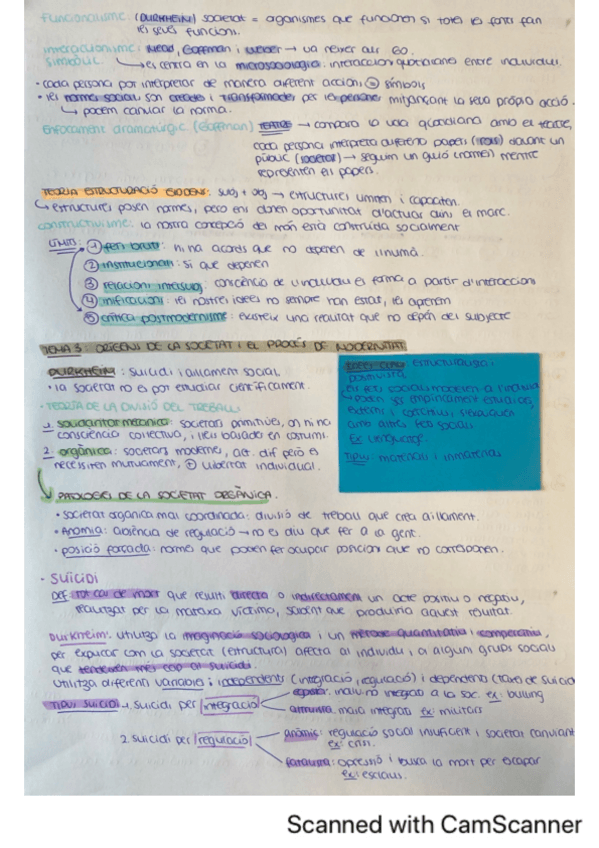 Funcionalisme: (DURKHEIM) societat = organismes que funcionen si totes les parts fan
les seves funcions.
Interaccionisme: Mead, Goffman i Weber → va néixer als 60.
simbòlic → es centra en la microsociologia: interaccions quotidianes entre individus.
· cada persona pot interpretar de manera diferent accions = símbols
· les normes socials són creades i transformades per les persones mitjançant la seva pròpia acció.
↳ podem canviar la norma.
Enfocament dramatúrgic (Goffman) TEATRE → compara la vida quotidiana amb el teatre,
cada persona interpreta diferents papers (rols) davant un
públic (societat) → seguim un guió (normes) mentre
representem els papers.
TEORIA ESTRUCTURACIÓ GIDDENS: subj + obj → estructures limiten i capaciten.
↳ estructures posen normes, però ens donen oportunitat d'actuar dins el marc.
constructivisme: la nostra concepció del món està construïda socialment
LÍMITS: ① fets bruts: hi ha acords que no depenen de l'humà.
② institucionals: si que depenen
③ relacions intersubj: consciència de l'individu es forma a partir d'interaccions
④ : les nostres idees no sempre han estat, les aprenem
⑤ crítica postmodernisme: existeix una realitat que no depèn del subjecte
TEMA 3: ORÍGENS DE LA SOCIETAT I EL PROCÉS DE MODERNITAT
DURKHEIM: suïcidi i aïllament social.
· la societat no es pot estudiar científicament.
· TEORIA DE LA DIVISIÓ DEL TREBALL
1. solidaritat mecànica: societats primitives, on hi ha
consciència col·lectiva, i lleis basades en costums.
2. orgànica: societats modernes, act. dif però es
necessiten mutuament, + llibertat individual.
: estructuralista i
positivista
els fets socials modelen a l'individu
↳ poden ser empíricament estudiats,
externs i coercitius, s'expliquen
amb altres fets socials
Ex: llenguatge.
TIPUS: materials i immaterials
PATOLOGIES DE LA SOCIETAT ORGÀNICA.
· societat orgànica mal coordinada: divisió de treball que crea aïllament.
· Anomia: absència de regulació → no es diu que fer a la gent.
· posició forçada: normes que poden fer ocupar posicions que no corresponen.
· SUÏCIDI
DEF: tot cas de mort que resulti directa o indirectament un acte positiu o negatiu,
realitzat per la mateixa víctima, sabent que produiria aquest resultat.
Durkheim: utilitza la imaginació sociològica i un mètode quantitatiu i comparatiu,
per explicar com la societat (estructura) afecta al individu, i a alguns grups socials
que tendeixen més cap al suïcidi.
Utilitza diferents variables: independents (integració, regulació) i dependents (taxa de suïcidi)
TIPUS SUÏCIDI → 1. suïcidi per integració egoista: indiv. no integrats a la soc. ex: bulling
altruista: massa integrats ex: militars
2. suïcidi per regulació anòmic: regulació social insuficient i societat canviant
ex: crisi.
fatalista: opressió i busca la mort per escapar
ex: esclaus.
Scanned with CamScanner